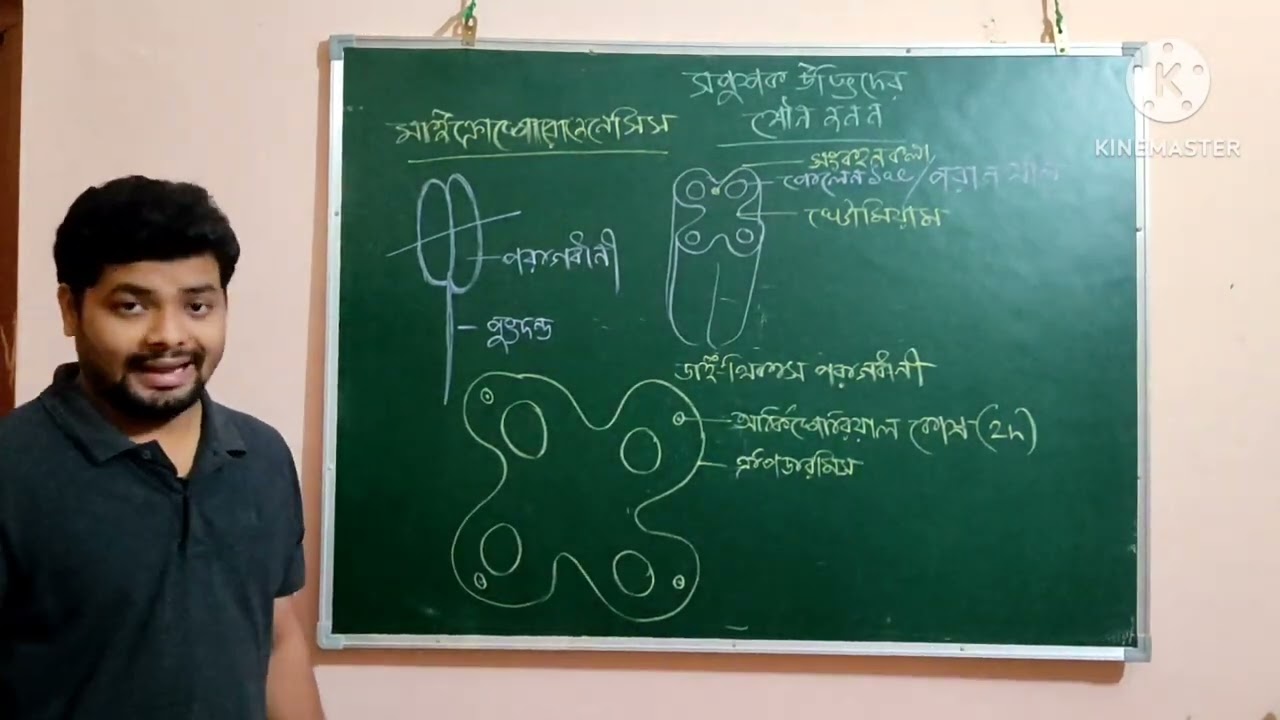 সপুষ্পক উদ্ভিদের
যৌন জনন
মাইক্রোস্পোরোজেনেসিস
সংবহন কলা
পোলেন sac / পরাগ থলি
স্টোমিয়াম
পরাগধানী
পুংদন্ড
ডাই-থিকাস পরাগধানী
আর্কিস্পোরিয়াল কোষ (2n)
এপিডারমিস
K
KINEMASTER